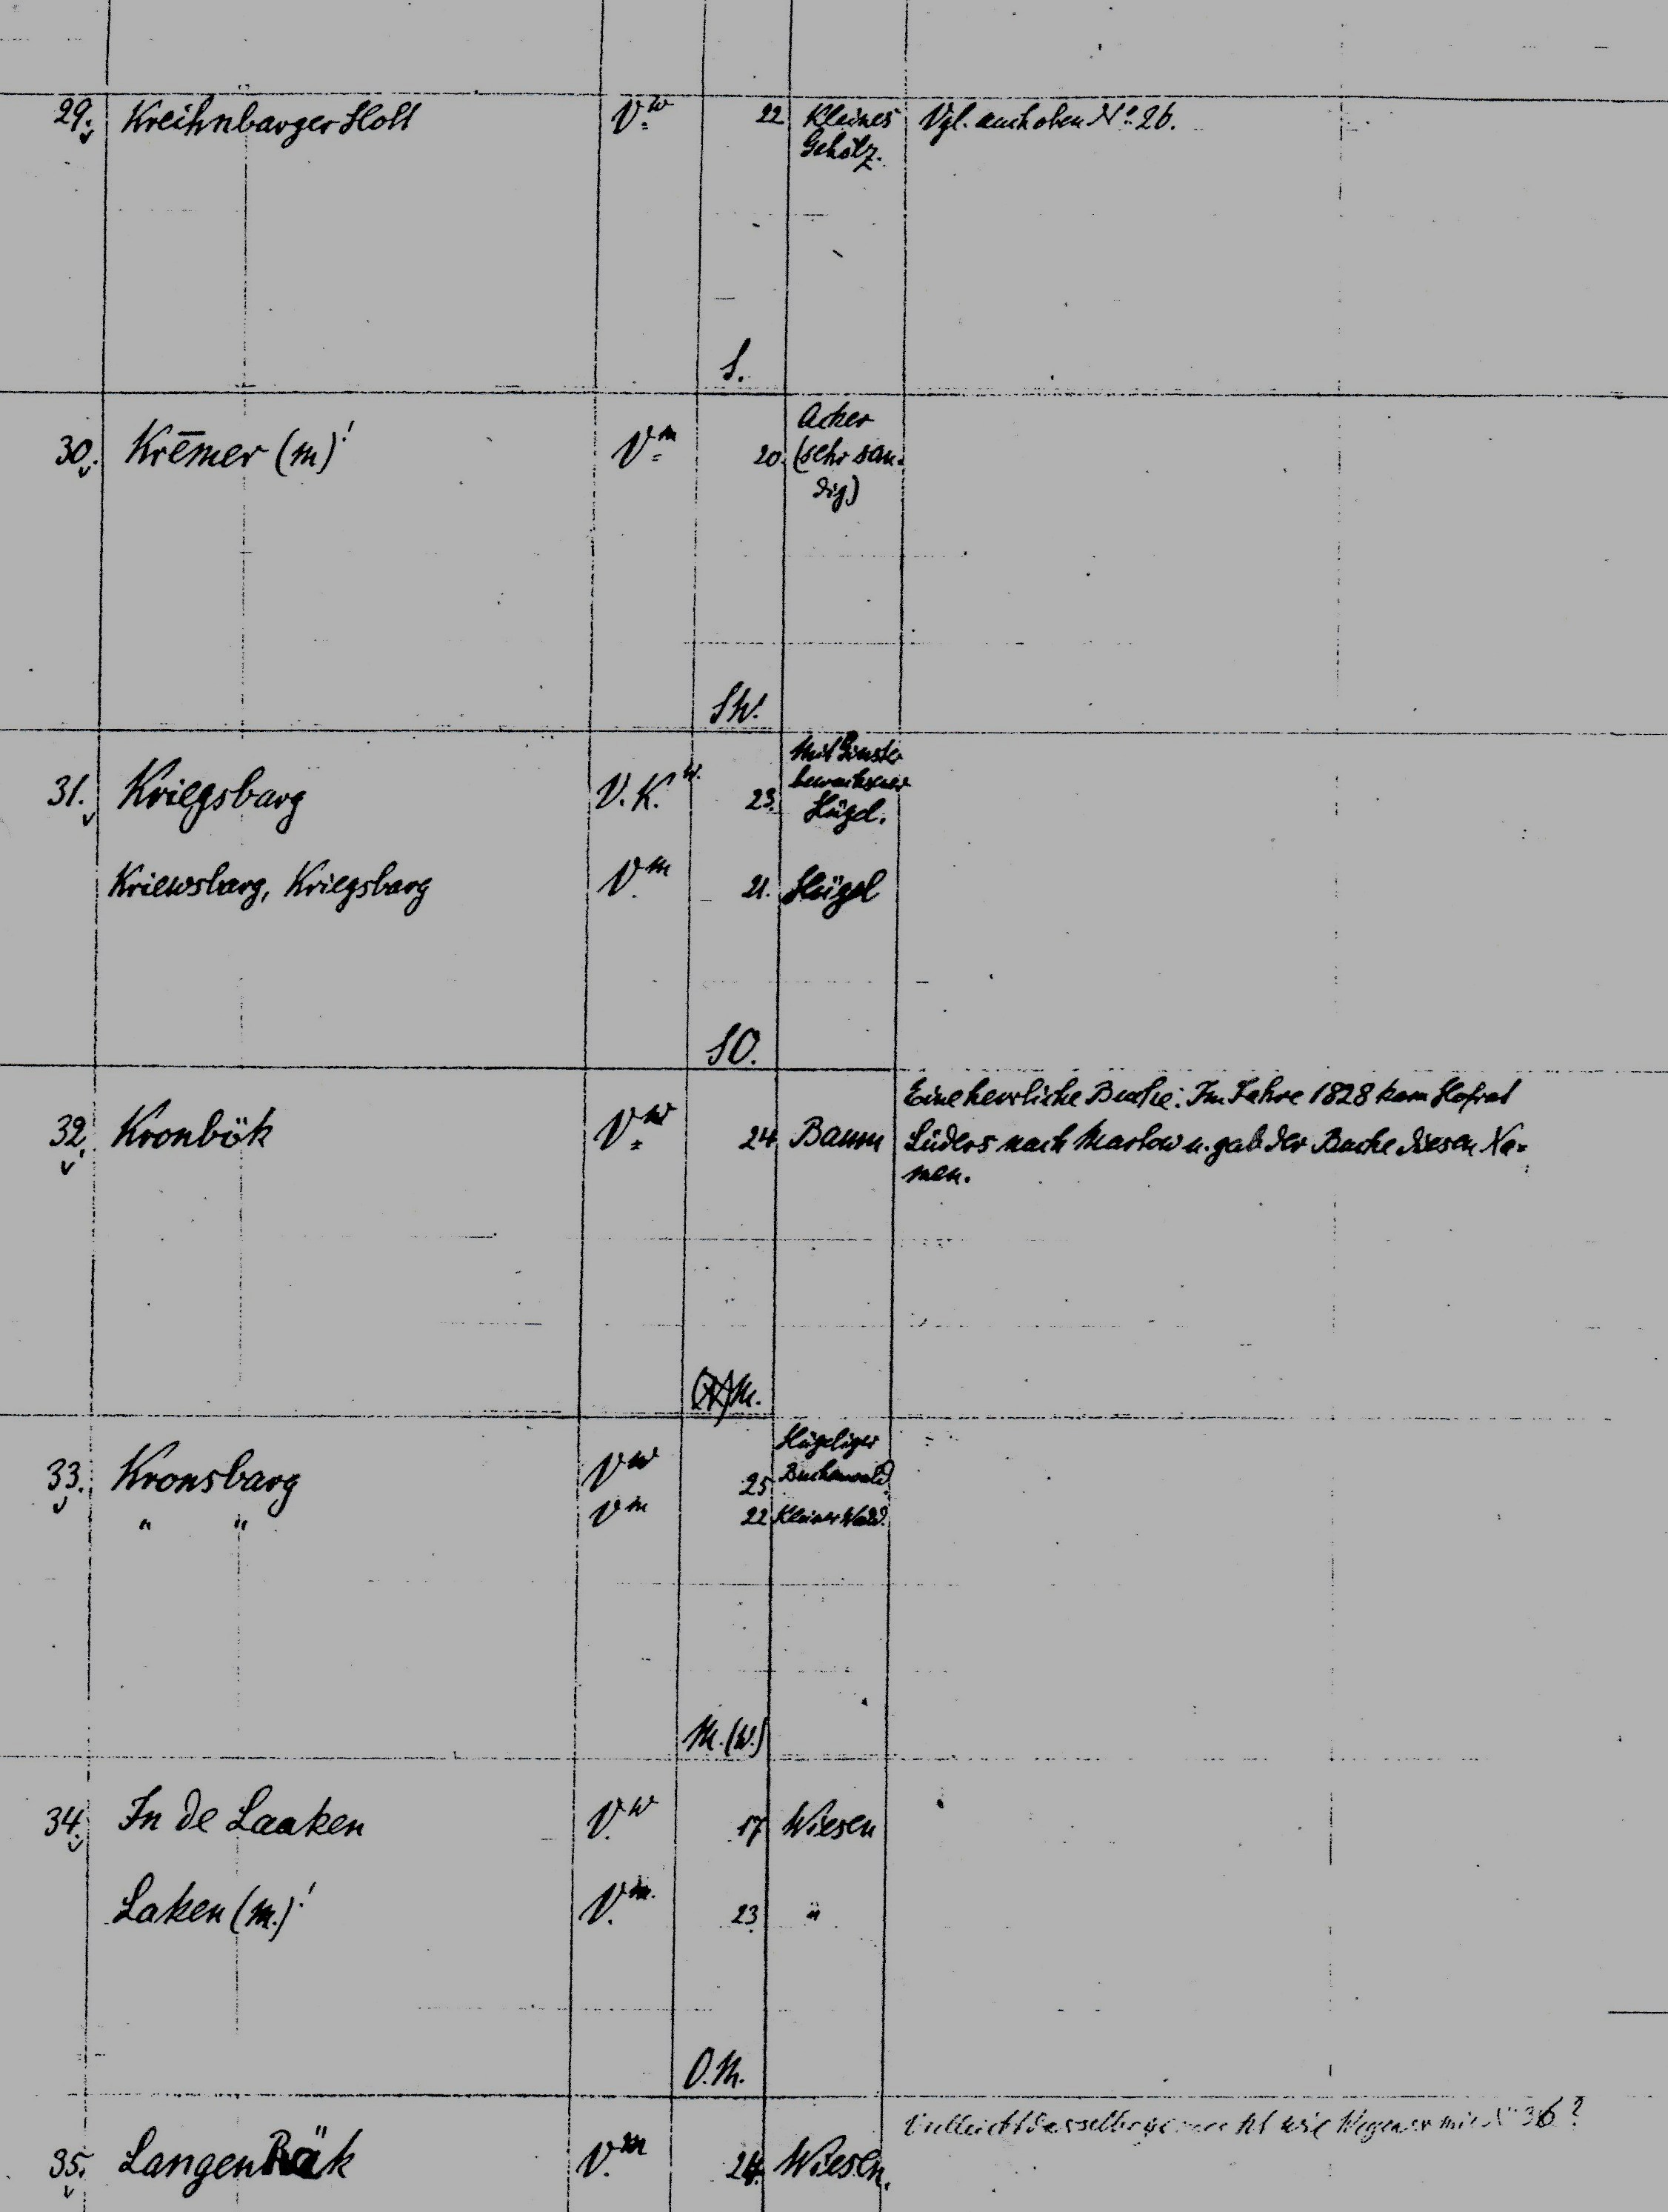 29. Kreihnbarger Holt V.w 22 Kleines Vgl. auch oben No. 26.
Gehölz.
S.
Acker
30. Krēmer (m)! V.m 20. (sehr san-
dig)
SW.
Mit Ginster
bewachsener
31. Kriegsbarg V. K. w. 23. Hügel.
Kriewsbarg, Kriegsbarg V.m 21. Hügel
SO.
Eine herrliche Buche. Im Jahre 1828 kam Hofrat
32. Kronbök V.w 24. Baum Lüders nach Marlow u. gab der Buche diesen Na-
men.
M.
Hügeliger
33. Kronsbarg Vw 25 Buchenwald.
" " Vm 22 Kleiner Wald.
M. (W.)
34. In de Laaken V.w 17 Wiesen
Laken (m.)! V.m. 23. "
O.M.
Vielleicht dasselbe wie No 36?
35. Langen Bäk V.m 24. Wiesen.